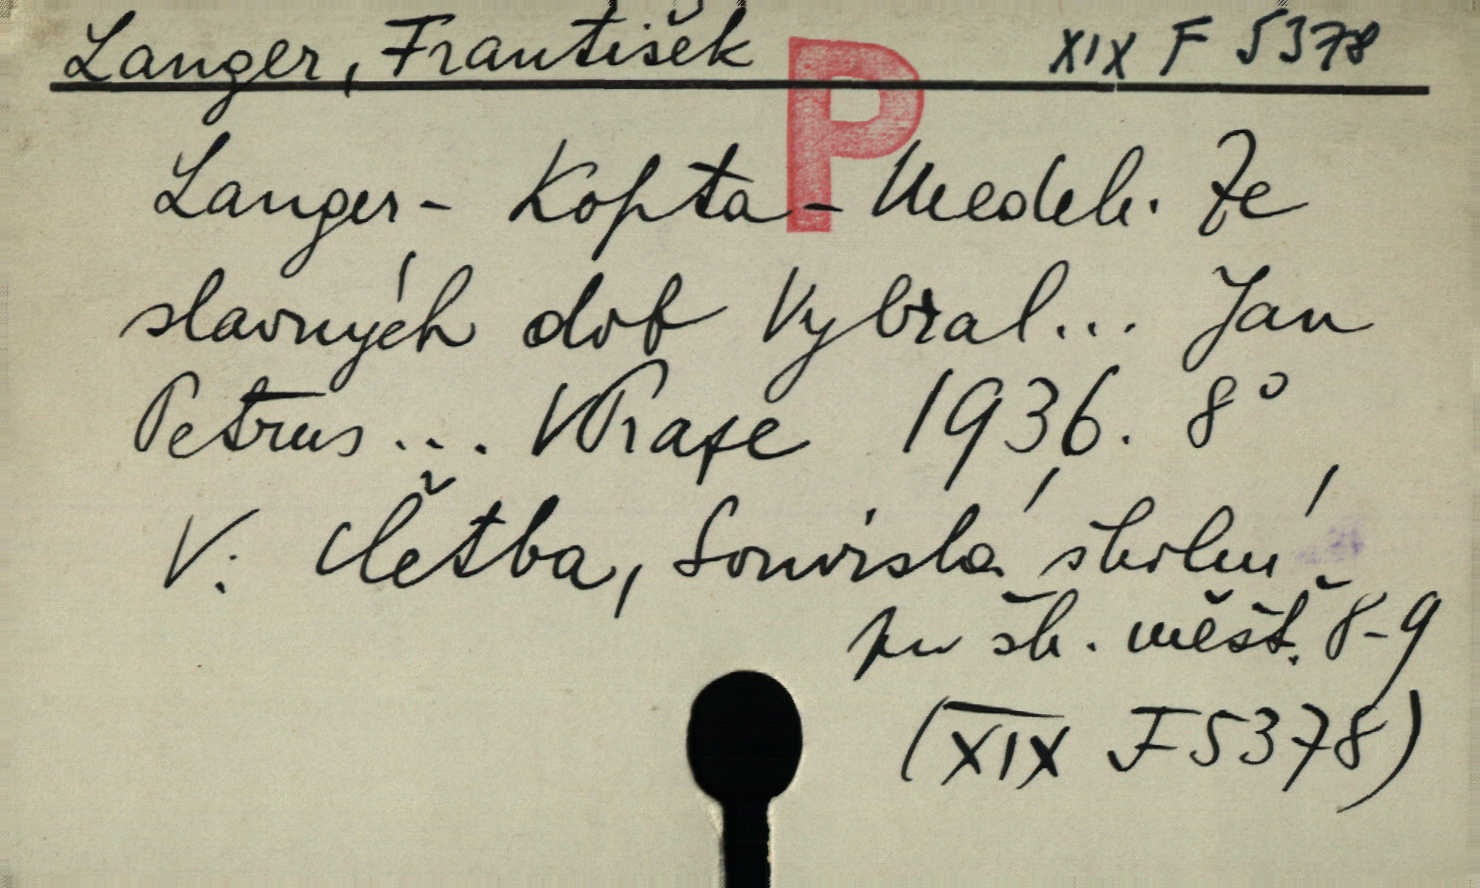 Langer, František XIX F 5378
P
Langer - Kopta - Medek. Ze
slavných dob Vybral... Jan
Petrus... V Praze 1936. 8°
V: Četba, Souvislá školní
pro šk. měšť. 8-9
(XIX F 5378)